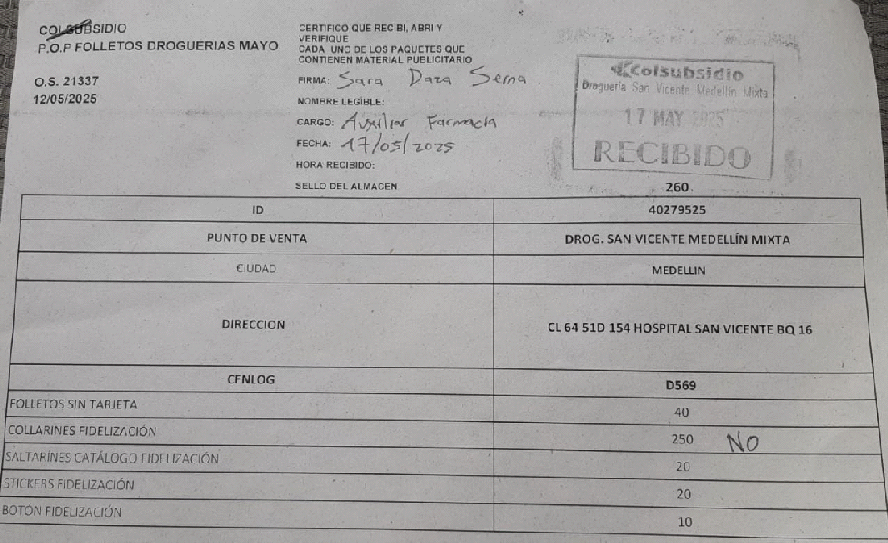 COLSUBSIDIO
P.O.P FOLLETOS DROGUERIAS MAYO
O.S. 21337
12/05/2025
CERTIFICO QUE RECIBI, ABRI Y
VERIFIQUE
CADA UNO DE LOS PAQUETES QUE
CONTIENEN MATERIAL PUBLICITARIO
FIRMA: Sara Daza Serna
NOMBRE LEGIBLE:
CARGO: Auxiliar Farmacia
FECHA: 17/05/2025
HORA RECIBIDO:
SELLO DEL ALMACEN
Colsubsidio
Droguería San Vicente Medellín Mixta
17 MAY 2025
RECIBIDO
260
ID 40279525
PUNTO DE VENTA DROG. SAN VICENTE MEDELLÍN MIXTA
CIUDAD MEDELLIN
DIRECCION CL 64 51D 154 HOSPITAL SAN VICENTE BQ 16
CENLOG D569
FOLLETOS SIN TARJETA 40
COLLARINES FIDELIZACIÓN 250 NO
SALTARINES CATÁLOGO FIDELIZACIÓN 20
STICKERS FIDELIZACIÓN 20
BOTON FIDELIZACIÓN 10